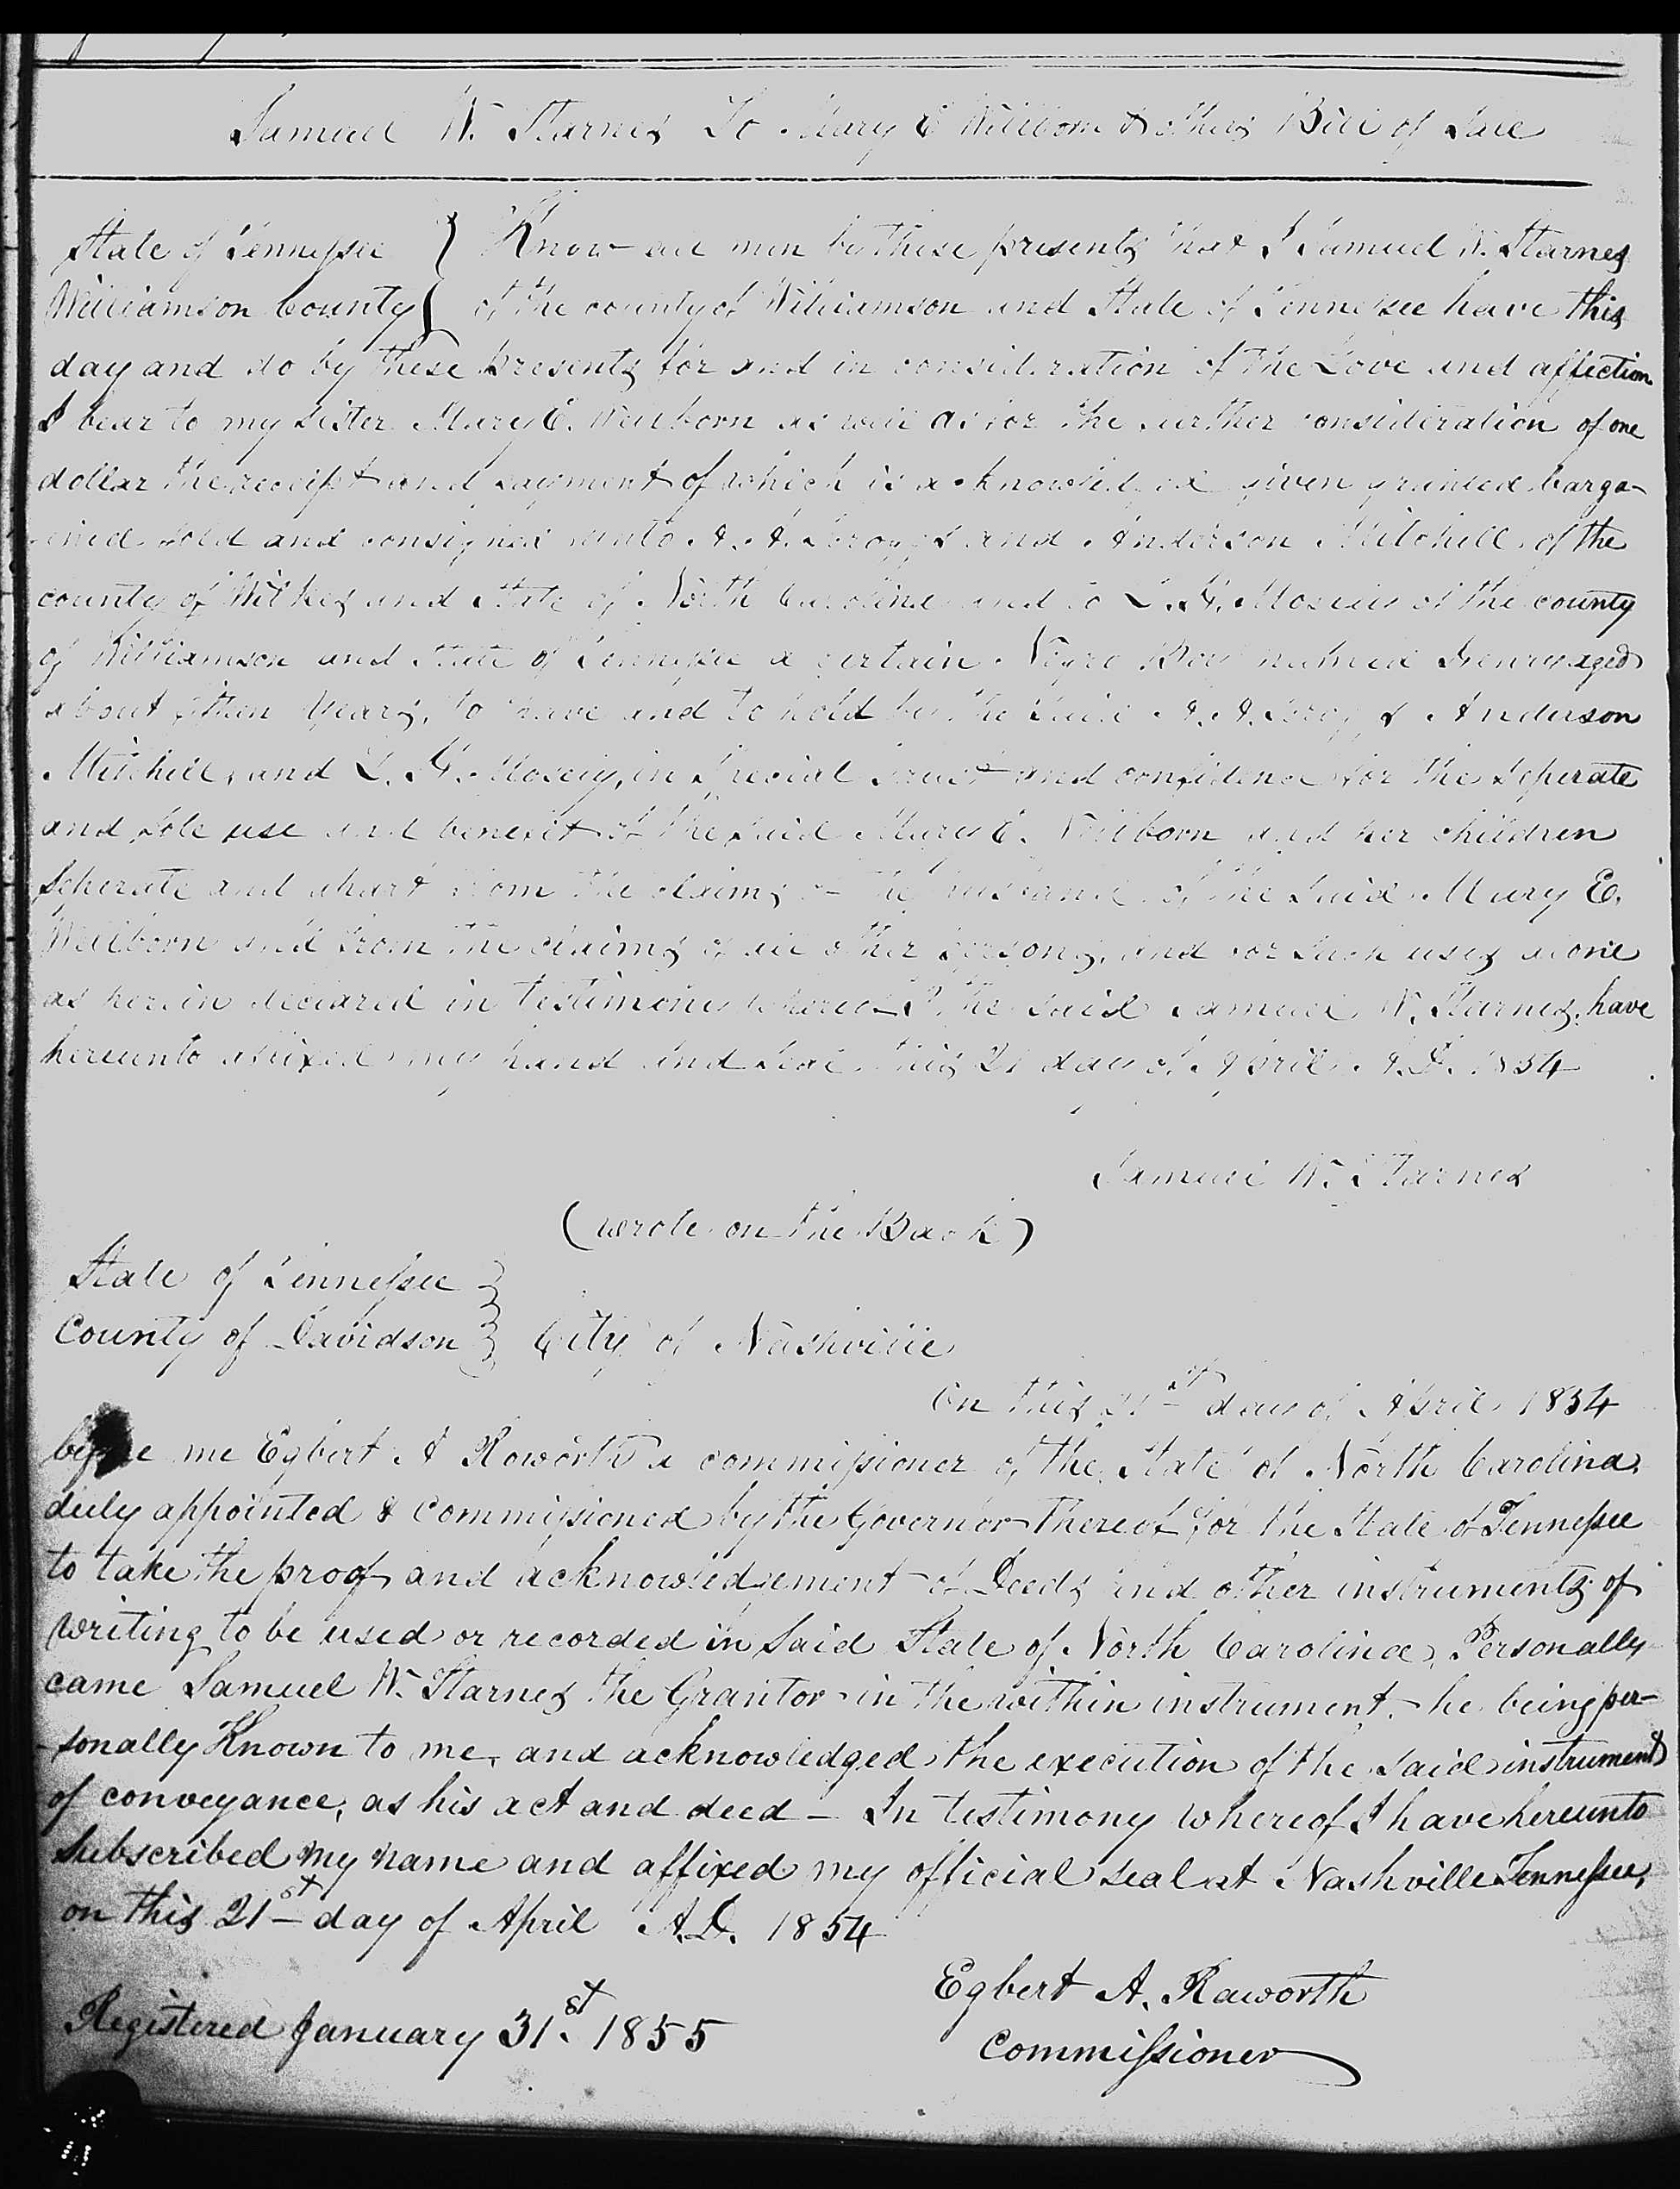 Samuel W. Starnes To Mary E Wellborn & others Bill of Sale
State of Tennessee } Know all men by these presents that I Samuel W. Starnes
Williamson County { of the county of Williamson and State of Tennessee have this
day and do by these presents for and in consideration of the Love and affection
I bear to my sister Mary E. Wellborn as well as for the further consideration of one
dollar the receipt and payment of which is acknowledged given granted barga-
ined sold and consigned unto A. A. Scroggs and Anderson Mitchell of the
county of Wilkes and State of North Carolina and to L. G. of the county
of Williamson and State of Tennessee a certain Negro Boy named Henry aged
about years, to have and to hold by the said A. A. Scroggs Anderson
Mitchell, and L. G. in special trust and confidence for the seperate
and sole use and benefit of the said Mary E. Wellborn and her children
seperate and apart from the claims of the husband of the said Mary E.
Wellborn and from the claims of all other persons, and for such uses alone
as herein declared in testimony whereof I the said Samuel W. Starnes, have
hereunto affixed my hand and seal this 21 day of April A.D. 1854
Samuel W. Starnes
(wrote on the Back)
State of Tennessee }
County of Davidson } City of Nashville
On this 21st day of April 1854
before me Egbert A Raworth a commissioner of the State of North Carolina
duly appointed & commissioned by the Governor thereof for the State of Tennessee
to take the proof and acknowledgement of Deeds and other instruments of
writing to be used or recorded in said State of North Carolina, Personally
came Samuel W. Starnes the Grantor in the within instrument, he being per-
-sonally Known to me, and acknowledged the execution of the said instrument
of conveyance, as his act and deed – In testimony whereof I have hereunto
subscribed my name and affixed my official seal at Nashville Tennessee,
on this 21st day of April A.D. 1854
Egbert A. Raworth
Registered January 31st. 1855
Commissioner